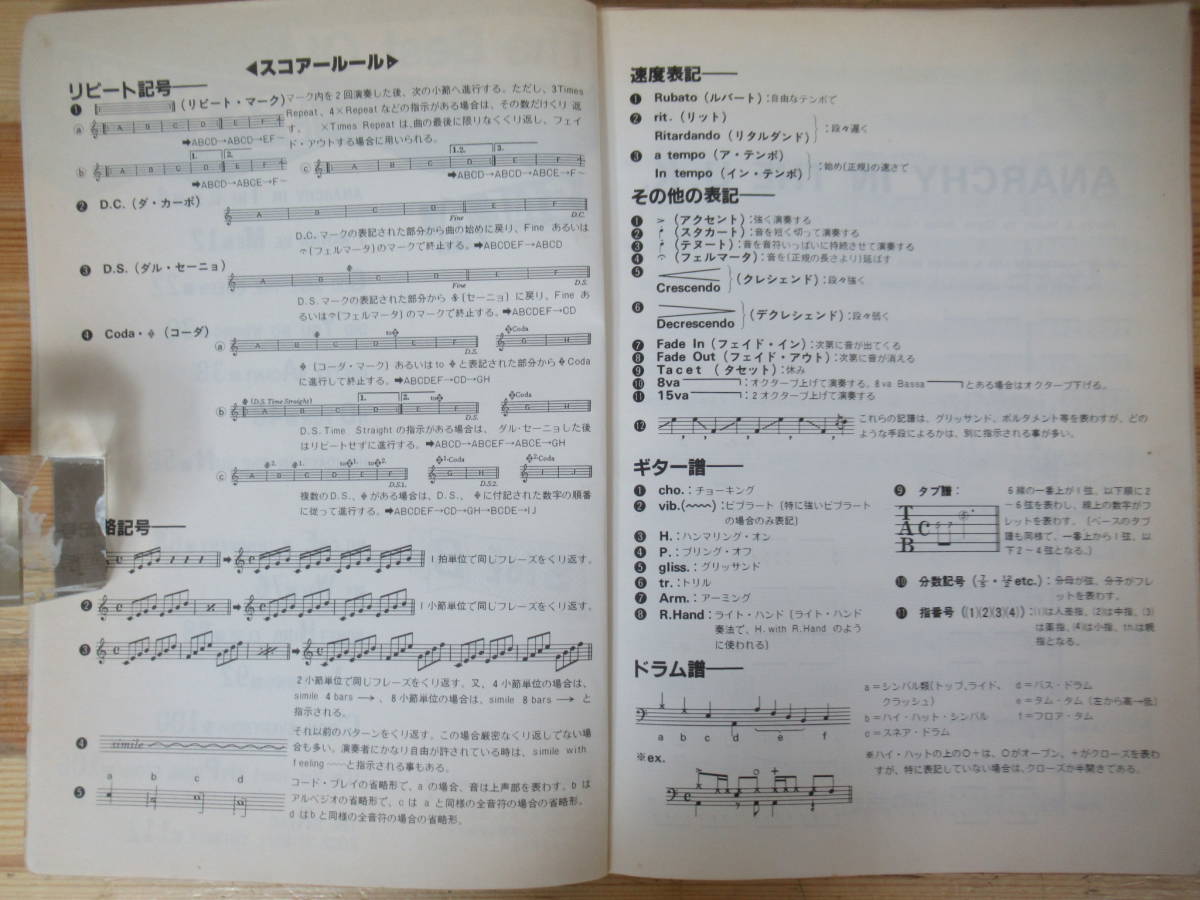 ◀スコアールール▶
リピート記号──
❶ (リピート・マーク) マーク内を2回演奏した後、次の小節へ進行する。ただし、3Times
Repeat、4×Repeat などの指示がある場合は、その数だけくり返
す。 ×Times Repeat は、曲の最後に限りなくくり返し、フェイ
ド・アウトする場合に用いられる。
a A B C D E F
➡ABCD→ABCD→EF～
b A B C D E F
1. 2.
➡ABCD→ABCE→F～
c A B C D E F
1.2. 3.
➡ABCD→ABCD→ABCE→F～
❷ D.C. (ダ・カーポ)
A B C D E F
Fine D.C.
D.C. マークの表記された部分から曲の始めに戻り、Fine あるいは
𝄐(フェルマータ)のマークで終止する。➡ABCDEF→ABCD
❸ D.S. (ダル・セーニョ)
Fine D.S.
D.S. マークの表記された部分から 𝄋(セーニョ) に戻り、Fine あ
るいは𝄐(フェルマータ)のマークで終止する。➡ABCDEF→CD
❹ Coda・𝄌 (コーダ)
a A B C D E F G H
to𝄌 D.S. 𝄌Coda
𝄌 (コーダ・マーク) あるいは to 𝄌 と表記された部分から 𝄌Coda
に進行して終止する。➡ABCDEF→CD→GH
b (D.S. Time Straight) 1. 2. to𝄌 D.S. 𝄌Coda
A B C D E F G H
D.S. Time Straight の指示がある場合は、ダル・セーニョした後
はリピートせずに進行する。➡ABCD→ABCEF→ABCE→GH
c A B C D E F G H I J
D.S.1. 𝄌1-Coda D.S.2. 𝄌2-Coda
複数のD.S.、𝄌がある場合は、D.S.、𝄌に付記された数字の順番
に従って進行する。➡ABCDEF→CD→GH→BCDE→IJ
略記号──
1拍単位で同じフレーズをくり返す。
❷ 1小節単位で同じフレーズをくり返す。
❸
2小節単位で同じフレーズをくり返す。又、4小節単位の場合は、
simile 4 bars ─→ 、8小節単位の場合は、simile 8 bars ─→ と
指示される。
❹ simile
それ以前のパターンをくり返す。この場合厳密なくり返しでない場
合も多い。演奏者にかなり自由が許されている時は、simile with
feeling 〜〜と指示される事もある。
a b c d
❺
コード・プレイの省略形で、a の場合、音は上声部を表わす。b は
アルペジオの省略形で、c は a と同様の全音符の場合の省略形。
d は b と同様の全音符の場合の省略形。
速度表記──
❶ Rubato (ルバート):自由なテンポで
❷ rit. (リット)
Ritardando (リタルダンド) :段々遅く
❸ a tempo (ア・テンポ)
In tempo (イン・テンポ) :始め(正規)の速さて
その他の表記──
❶ ＞ (アクセント):強く演奏する
❷ (スタカート):音を短く切って演奏する
❸ (テヌート):音を音符いっぱいに持続させて演奏する
❹ 𝄐 (フェルマータ):音を(正規の長さより)延ばす
❺
Crescendo (クレシェンド):段々強く
❻
Decrescendo (デクレシェンド):段々弱く
❼ Fade In (フェイド・イン):次第に音が出てくる
❽ Fade Out (フェイド・アウト):次第に音が消える
❾ Tacet (タセット):休み
❿ 8va ────┐:オクターブ上げて演奏する。8va Bassa ────┐とある場合はオクターブ下げる。
⓫ 15va ────┐:2オクターブ上げて演奏する
⓬ これらの記譜は、グリッサンド、ポルタメント等を表わすが、どの
ような手段によるかは、別に指示される事が多い。
ギター譜──
❶ cho.:チョーキング
❷ vib.(〜〜):ビブラート (特に強いビブラート
の場合のみ表記)
❸ H.:ハンマリング・オン
❹ P.:プリング・オフ
❺ gliss.:グリッサンド
❻ tr.:トリル
❼ Arm.:アーミング
❽ R.Hand:ライト・ハンド (ライト・ハンド
奏法で、H. with R.Hand のよう
に使われる)
❾ タブ譜:
TAB
6線の一番上が1弦、以下順に2
～6弦を表わし、線上の数字がフ
レットを表わす。(ベースのタブ
譜も同様で、一番上から1弦、以
下2～4弦となる。)
❿ 分数記号 ( etc.):分母が弦、分子がフレ
ットを表わす。
⓫ 指番号 ((1)(2)(3)(4)):(1)は人差指、(2)は中指、(3)
は薬指、(4)は小指、th.は親
指となる。
ドラム譜──
a b c d e f
a＝シンバル類(トップ、ライド、
クラッシュ)
b＝ハイ・ハット・シンバル
c＝スネア・ドラム
d＝バス・ドラム
e＝タム・タム (左から高→低)
f＝フロア・タム
※ex.
※ハイ・ハットの上の○＋は、○がオープン、＋がクローズを表わ
すが、特に表記していない場合は、クローズか半開きである。